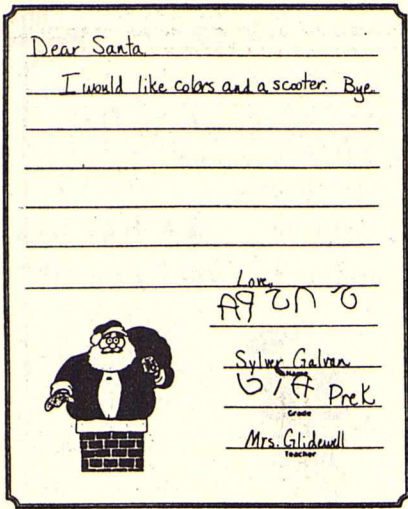 Dear Santa,
I would like colors and a scooter. Bye.
Love,
Sylver Galvan
Name
PreK
Grade
Mrs. Glidewell
Teacher